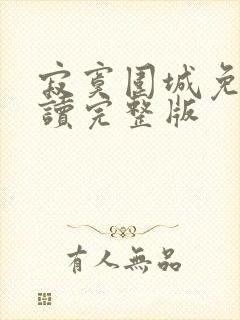 寂寞围城免
讀完整版
有人無品